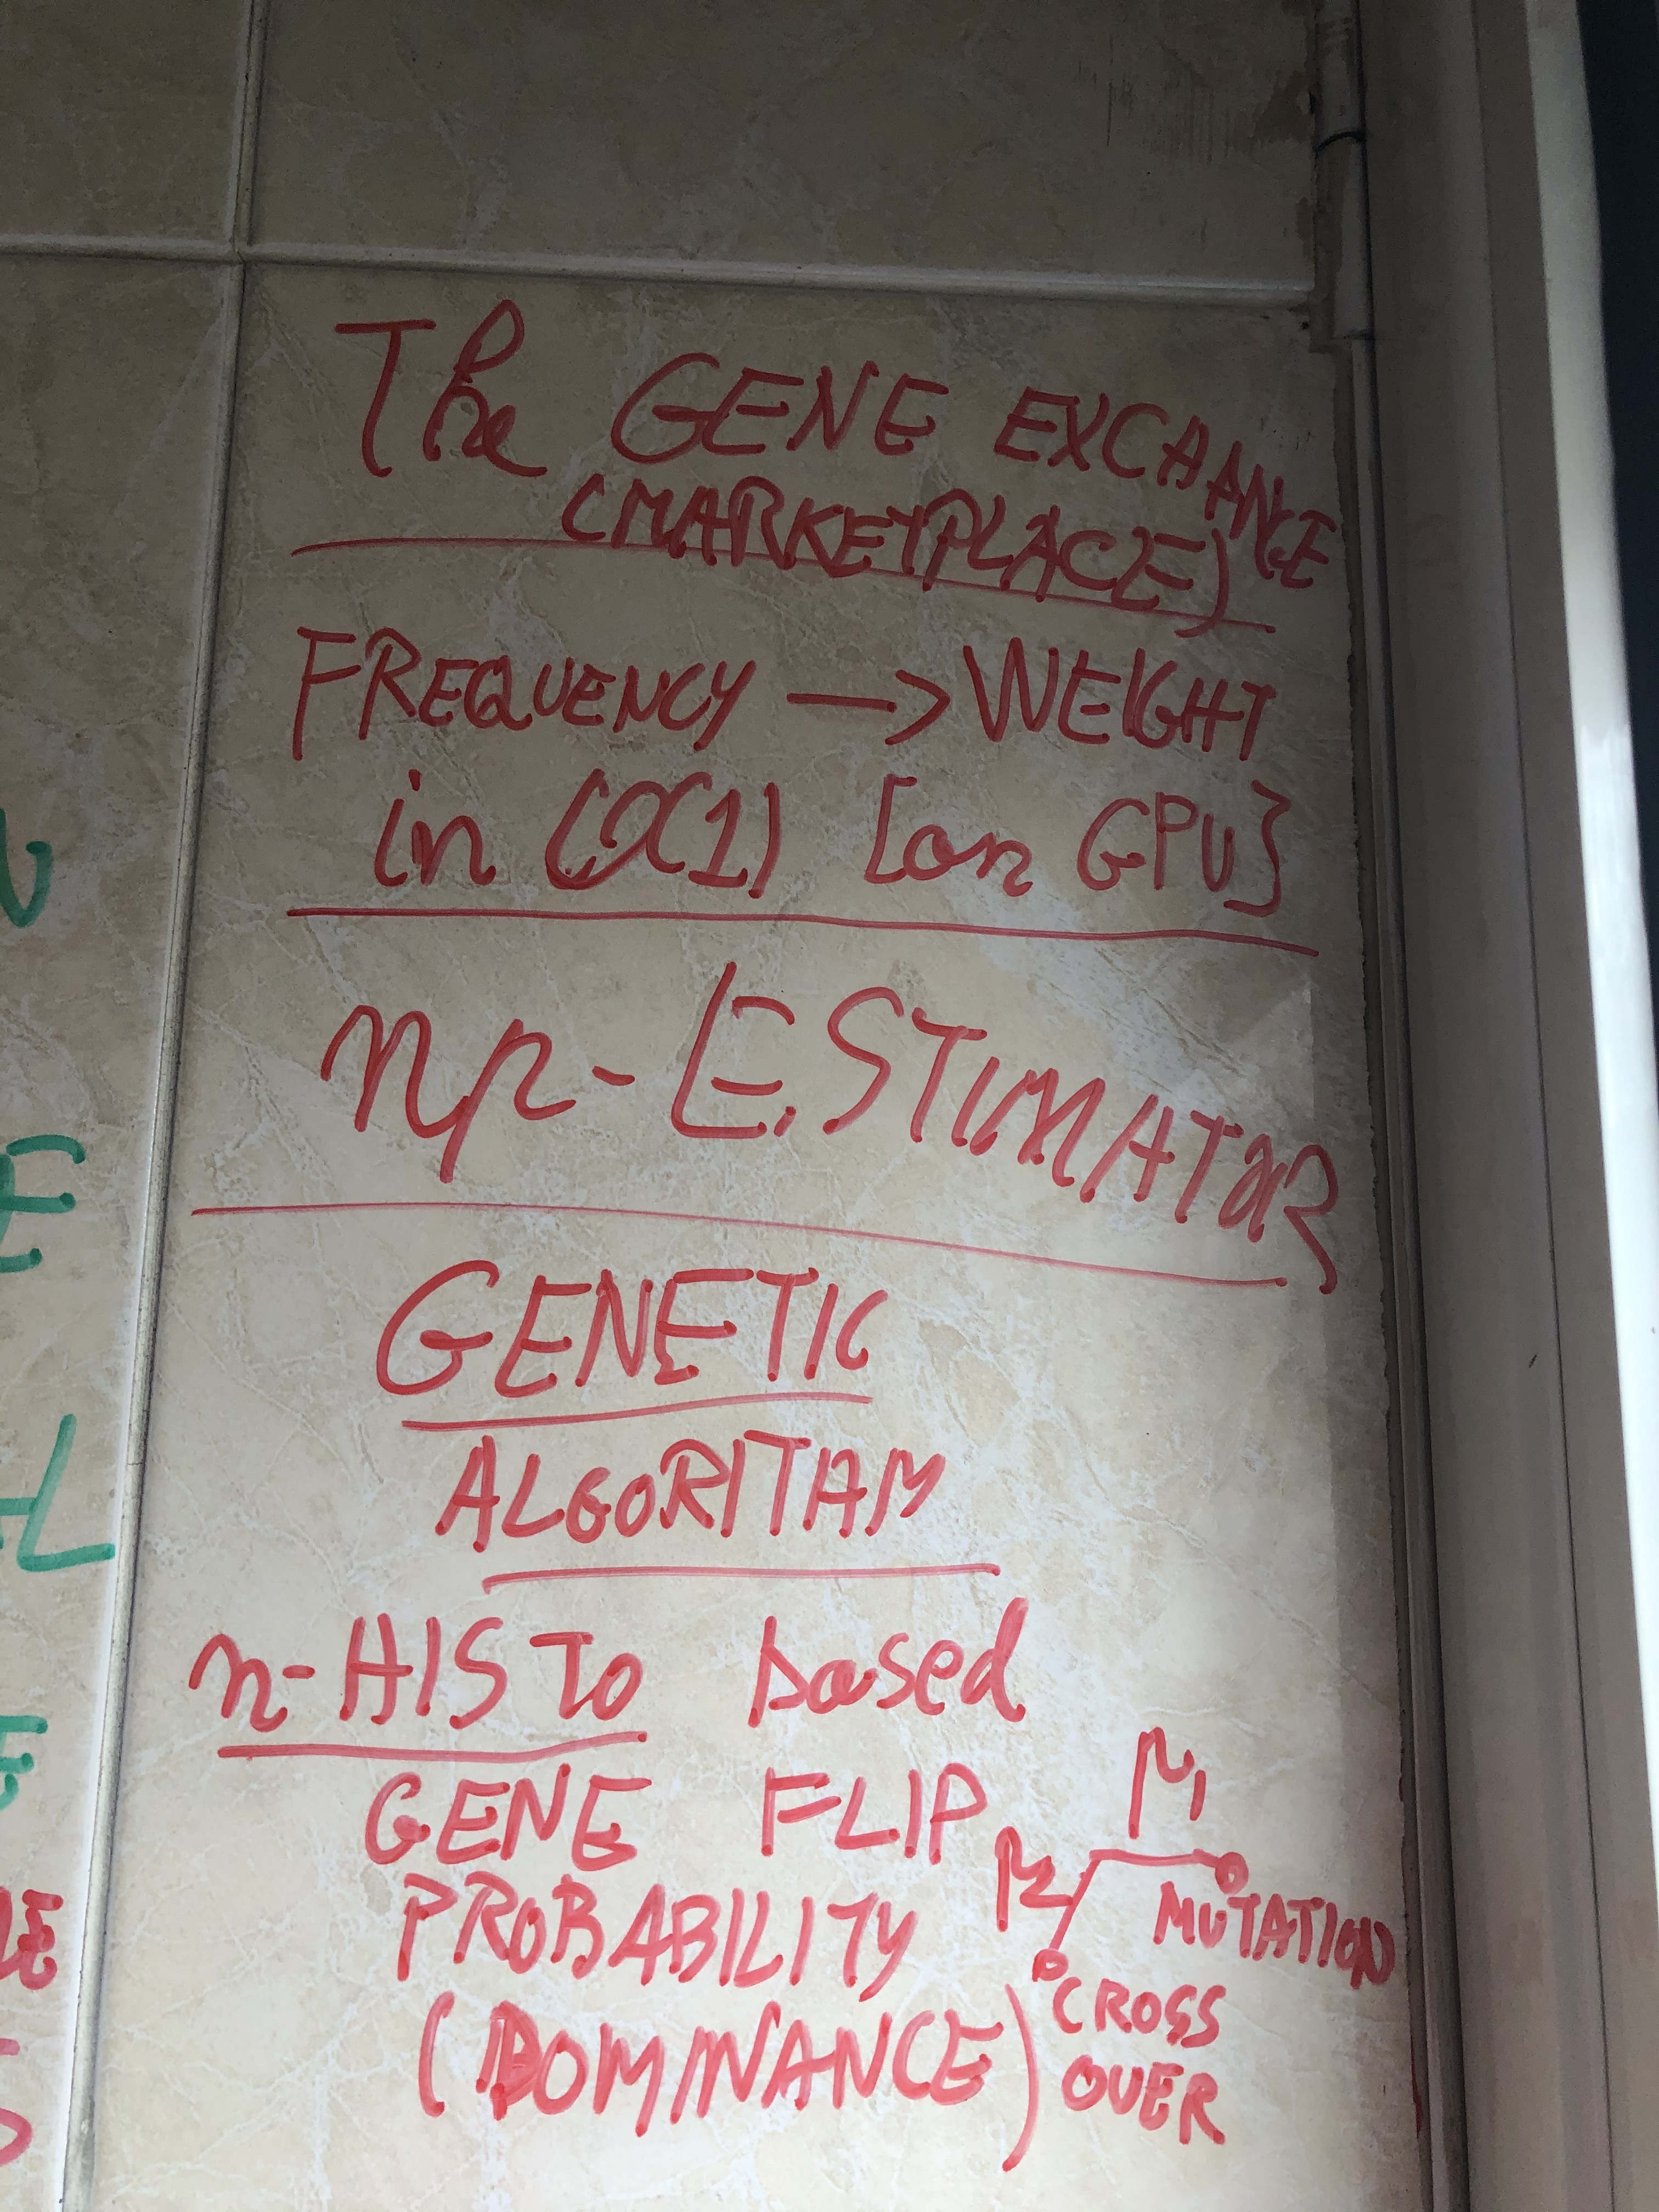 The GENE EXCHANGE
(MARKETPLACE)
FREQUENCY -> WEIGHT
in O(1) [on GPU]
np-ESTIMATOR
GENETIC
ALGORITHM
n-HISTO based
GENE FLIP
PROBABILITY
(DOMINANCE)
MUTATION
CROSS
OVER